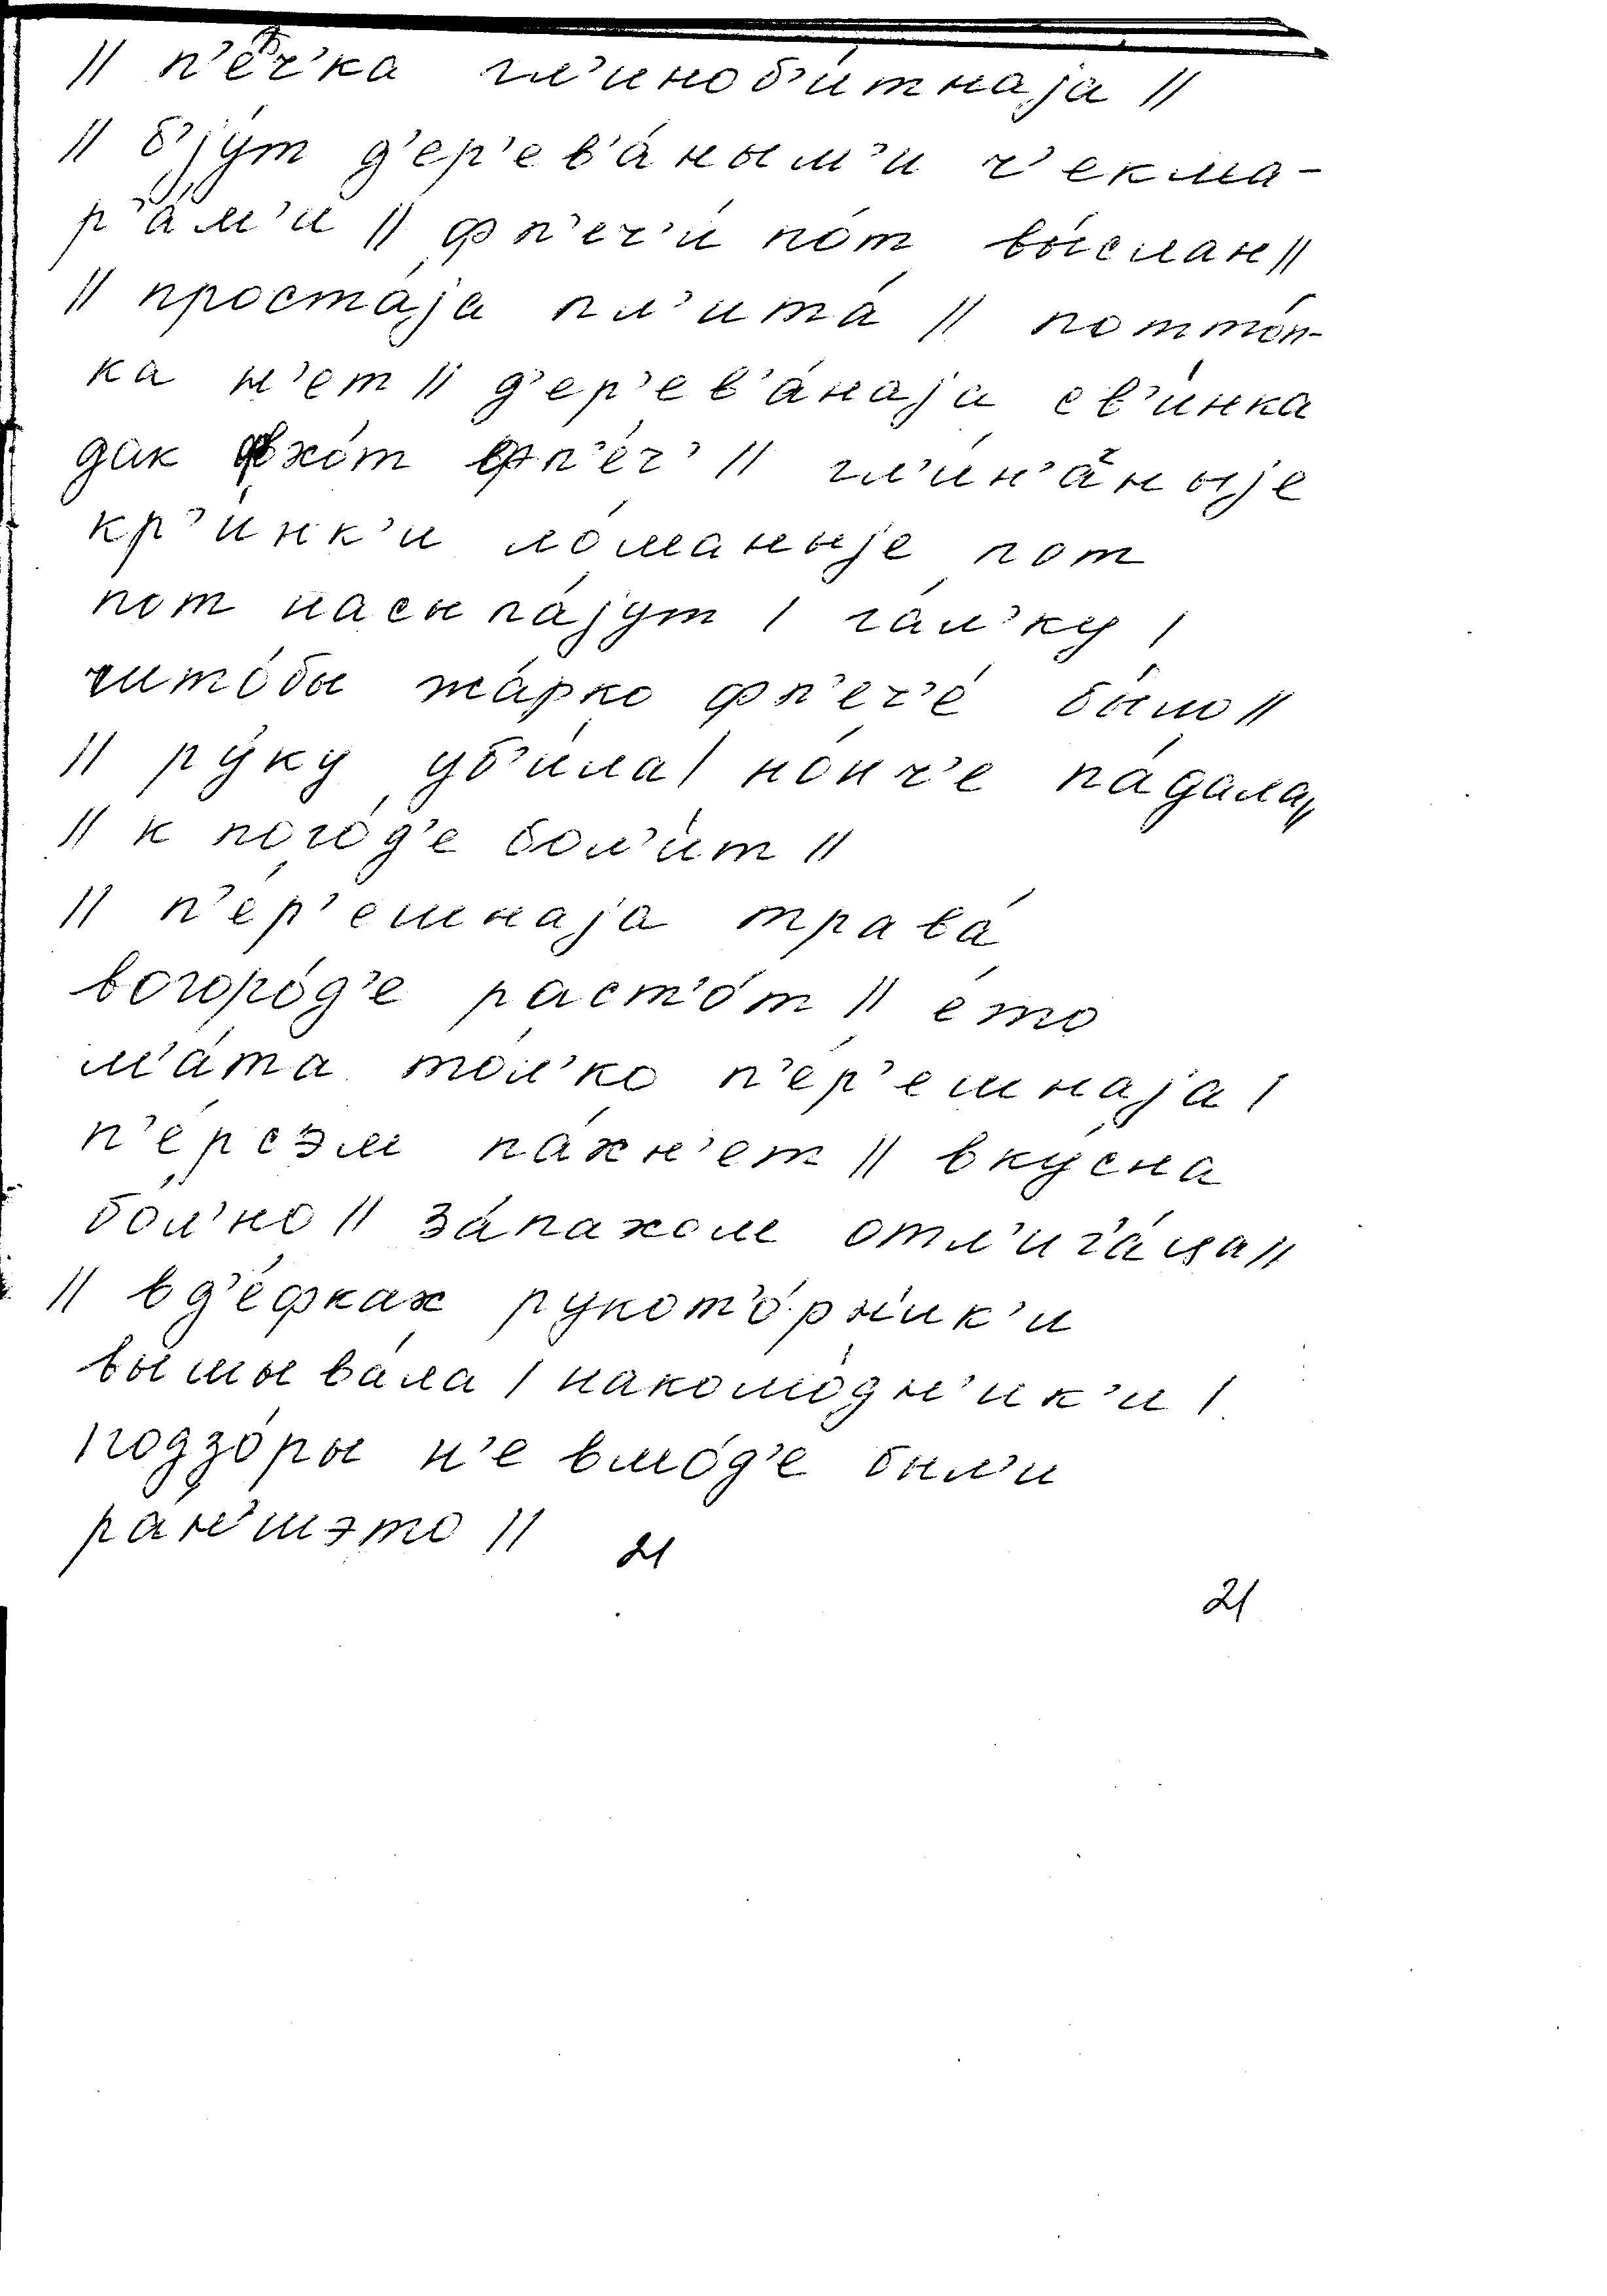 || п’е́ч’ка гл’иноб’и́тнаја ||
|| б’јут д’ер’ев’а́ным’и ч’екма-
р’а́м’и || фп’еч’и́ по́т вы́слан ||
|| проста́ја пл’ита́ || потто́п-
ка н’ет || д’ер’ев’а́наја св’и́нка
дак фхо́т фп’е́ч’ || гл’и́н’аныје
кр’и́нк’и ло́маныје пот
пот насыпа́јут | га́л’ку |
штобы жа́рко фп’еч’е́ бы́ло ||
|| ру́ку уб’и́ла | но́нч’е па́дала ||
|| к пого́д’е бол’и́т ||
|| п’е́р’ешнаја трава́
вогоро́д’е раст’о́т || е́то
м’а́та то́л’ко п’е́р’ешнаја |
п’е́рсэм па́хн’ет || вку́сна
бо́л’но || за́пахом отл’ич’а́ца ||
|| вд’е́фках рукот’о́рн’ик’и
вышыва́ла | накомо́дн’ик’и |
подзо́ры н’е вмо́д’е был’и
ра́н’шэто || 21
21